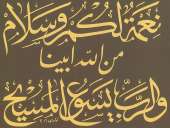 نعمة لكم وسلام
من الله ابينا
والرب يسوع المسيح